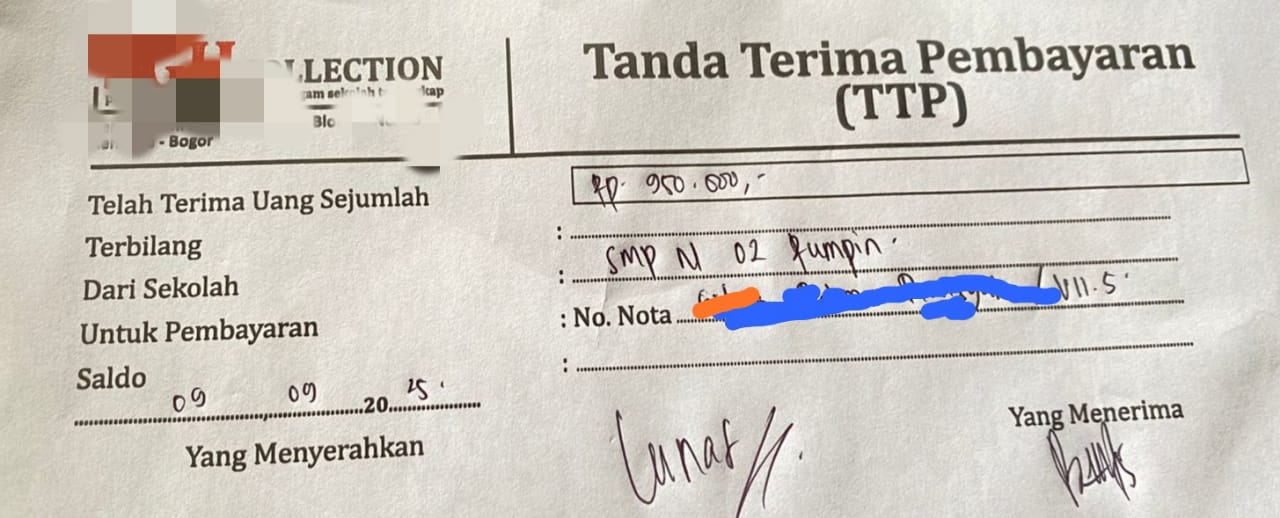 LLECTION
Blo
- Bogor
Tanda Terima Pembayaran
(TTP)
Telah Terima Uang Sejumlah
Rp. 950.000,-
Terbilang
:
Dari Sekolah
: SMP N 02 Rumpin.
Untuk Pembayaran
: No. Nota VII.5
Saldo
:
09 09 2025.
Yang Menyerahkan
Lunas
Yang Menerima